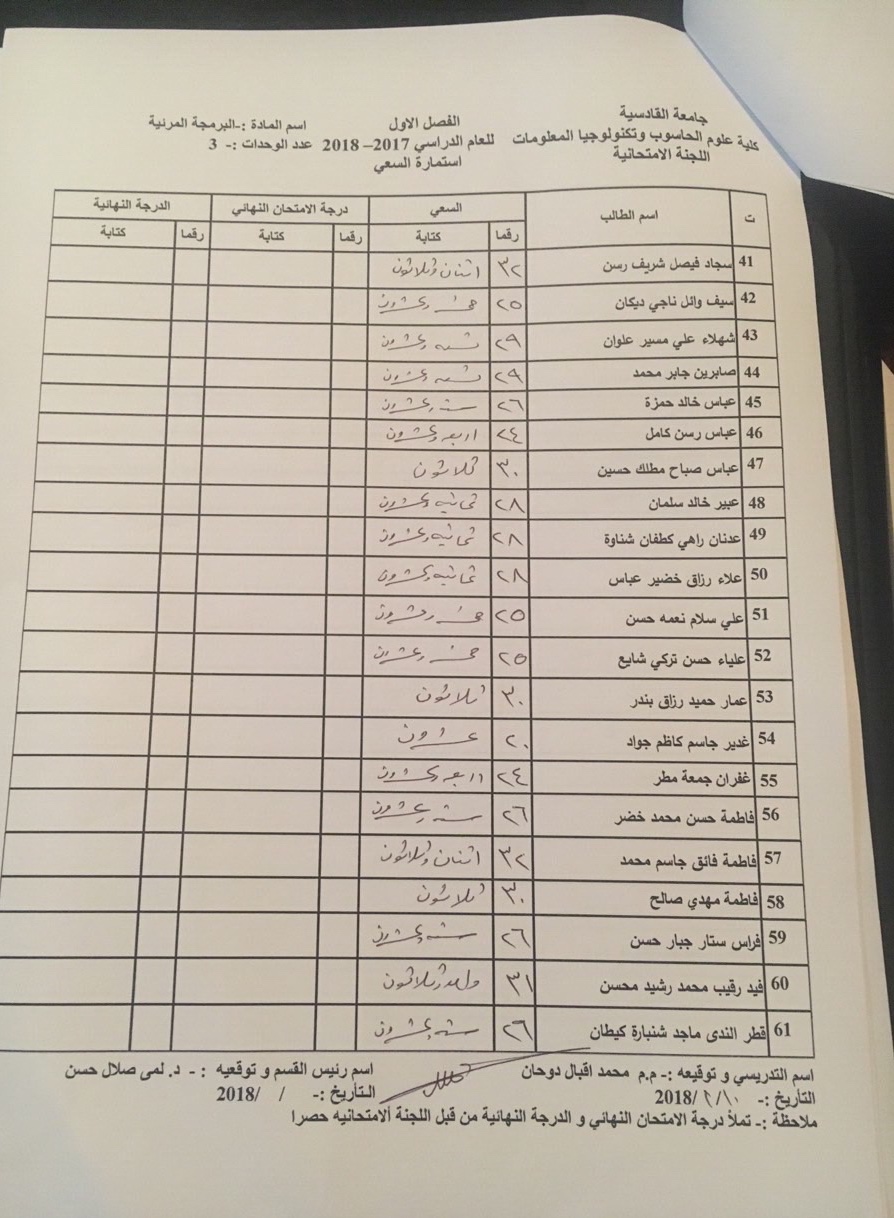 جامعة القادسية
كلية علوم الحاسوب وتكنولوجيا المعلومات
اللجنة الامتحانية
الفصل الاول
للعام الدراسي 2017– 2018
استمارة السعي
اسم المادة :-البرمجة المرئية
عدد الوحدات :- 3
ت اسم الطالب السعي درجة الامتحان النهائي الدرجة النهائية
رقما كتابة رقما كتابة رقما كتابة
41 سجاد فيصل شريف رسن ٣٢ اثنان وثلاثون
42 سيف وائل ناجي ديكان ٢٥ خمسه وعشرون
43 شهلاء علي مسير علوان ٢٩ تسعه وعشرون
44 صابرين جابر محمد ٢٩ تسعه وعشرون
45 عباس خالد حمزة ٢٦ سته وعشرون
46 عباس رسن كامل ٢٤ اربعه وعشرون
47 عباس صباح مطلك حسين ٣٠ ثلاثون
48 عبير خالد سلمان ٢٨ ثمانيه وعشرون
49 عدنان راهي كطفان شناوة ٢٨ ثمانيه وعشرون
50 علاء رزاق خضير عباس ٢٨ ثمانيه وعشرون
51 علي سلام نعمه حسن ٢٥ خمسه وعشرون
52 علياء حسن تركي شايع ٢٥ خمسه وعشرون
53 عمار حميد رزاق بندر ٣٠ ثلاثون
54 غدير جاسم كاظم جواد ٢٠ عشرون
55 غفران جمعة مطر ٢٤ اربعه وعشرون
56 فاطمة حسن محمد خضر ٢٦ سته وعشرون
57 فاطمة فائق جاسم محمد ٣٢ اثنان وثلاثون
58 فاطمة مهدي صالح ٣٠ ثلاثون
59 فراس ستار جبار حسن ٢٦ سته وعشرون
60 فيد رقيب محمد رشيد محسن ٣١ واحد وثلاثون
61 قطر الندى ماجد شنبارة كيطان ٢٦ سته وعشرون
اسم التدريسي و توقيعه :- م.م محمد اقبال دوحان اسم رئيس القسم و توقعيه : - د. لمى صلال حسن
التأريخ :- ١٠/٢ /2018 التأريخ :- / /2018
ملاحظة :- تملأ درجة الامتحان النهائي و الدرجة النهائية من قبل اللجنة ألامتحانيه حصرا